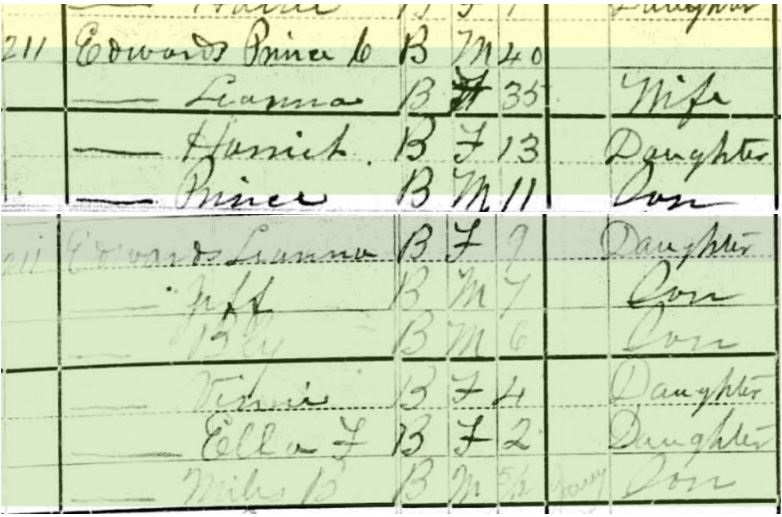 Daughter
211 Edwards Prince C B M 40
— Leanna B F 35 Wife
— Harriet B F 13 Daughter
— Prince B M 11 Son
211 Edwards Leanna B F 9 Daughter
— Jeff B M 7 Son
— B M 6 Son
— B F 4 Daughter
— Ella F B F 2 Daughter
— Miles B B M Son